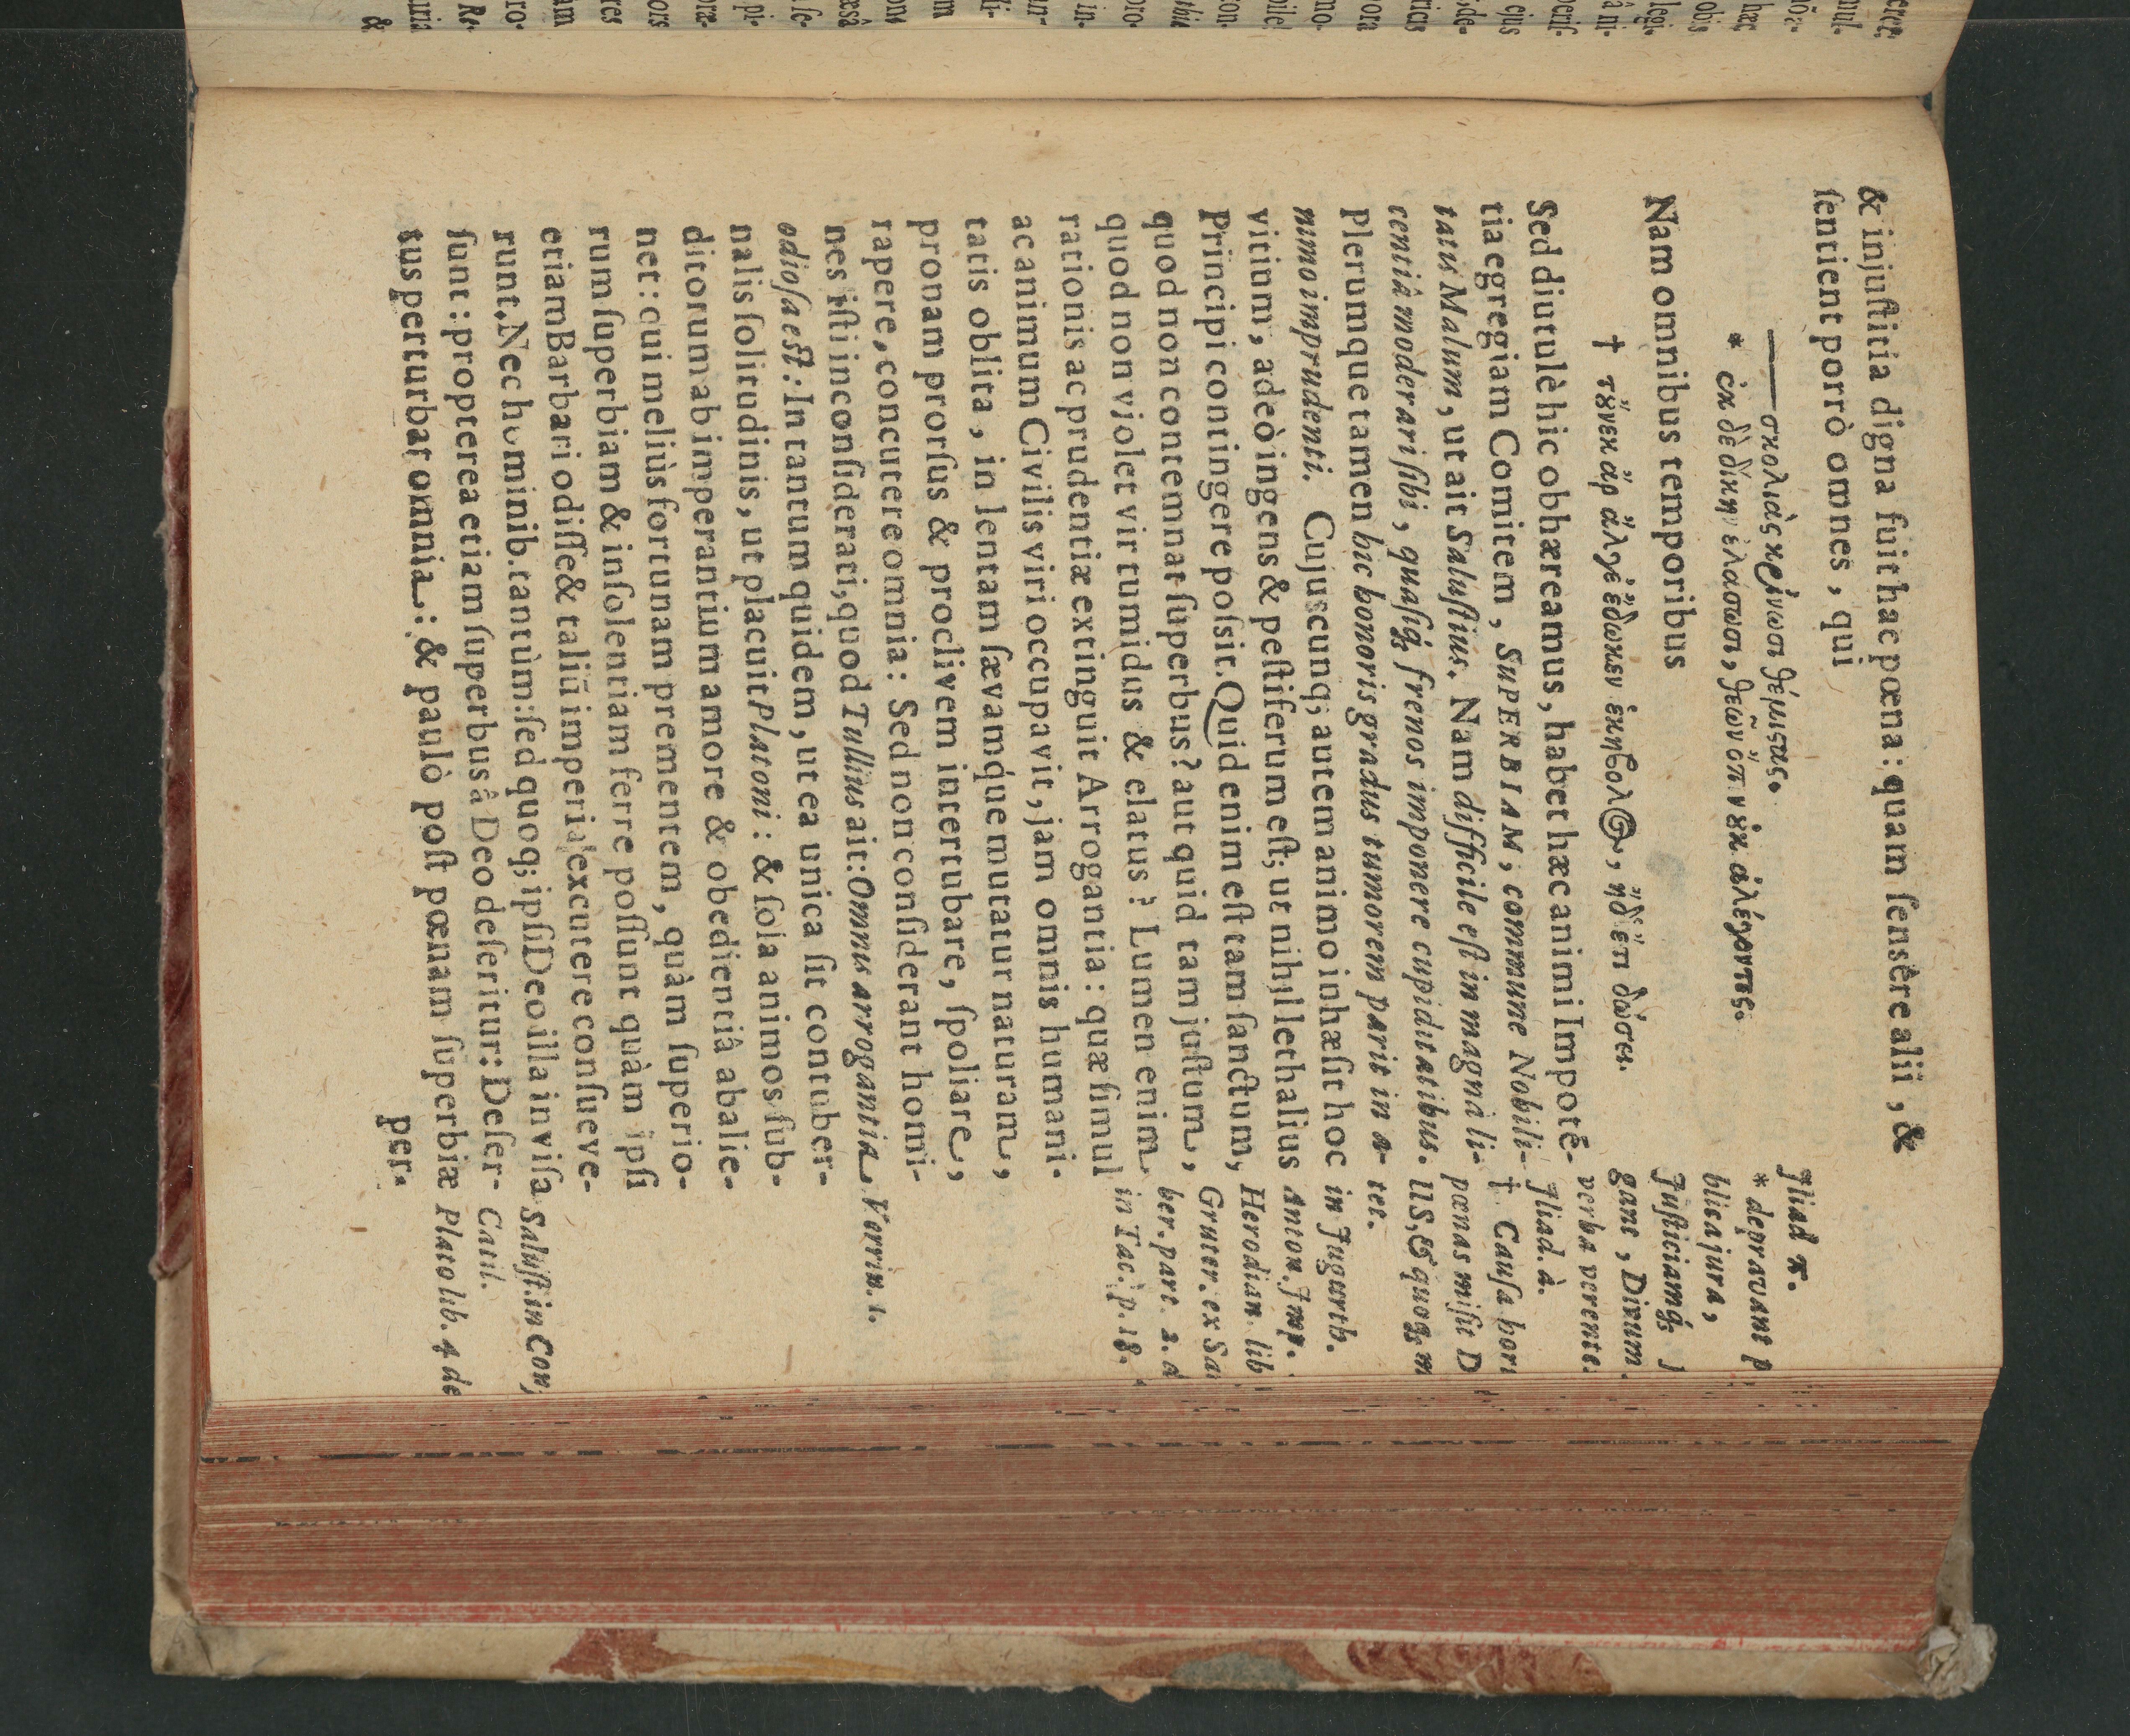 & injuſtitia digna fuit hac pœna: quam ſensêre alii, &
ſentient porrò omnes, qui
—— σκολιὰς κρίνωσι θέμιςας.
* ἐκ δὲ δίκην ἐλάσωσι, θεῶν ὄπιν ἐκ ἀλέγοντες.
Nam omnibus temporibus
† τȣ́νεκ ἄρ ἄλγε ἔδωκεν ἑκηβολ@, ἠδ ἔτι δώσει.
Sed diutulè hic obhæreamus, habet hæc animi Impotē-
tia egregiam Comitem, SUPERBIAM, commune Nobili-
tatis Malum, ut ait Saluſtius. Nam difficile eſt in magnâ li-
centiâ moderari ſibi, quaſiq; frenos imponere cupiditatibus.
Plerumque tamen hic honoris gradus tumorem parit in a-
nimo imprudenti. Cujuscunq; autem animo inhæſit hoc
vitium, adeò ingens & peſtiferum eſt; ut nihil lethalius
Principi contingere poſsit. Quid enim eſt tam ſanctum,
quod non contemnat ſuperbus? aut quid tam juſtum,
quod non violet vir tumidus & elatus? Lumen enim
rationis ac prudentiæ extinguit Arrogantia: quæ ſimul
ac animum Civilis viri occupavit, jam omnis humani-
tatis oblita, in lentam ſævamque mutatur naturam,
pronam prorſus & proclivem intertubare, ſpoliare,
rapere, concutere omnia: Sed non conſiderant homi-
nes iſti inconſiderati, quod Tullius ait: Omnis arrogantia
odioſa eſt: In tantum quidem, ut ea unica ſit contuber-
nalis ſolitudinis, ut placuit Platoni: & ſola animos ſub-
ditorum ab imperantium amore & obedientiâ abalie-
net: cui meliùs fortunam prementem, quàm ſuperio-
rum ſuperbiam & inſolentiam ferre poſſunt quàm ipſi
etiam Barbari odiſſe & taliū imperia excutere conſueve-
runt. Nec hominib. tantùm: ſed quoq; ipſi Deo illa inviſa
ſunt: propterea etiam ſuperbus â Deo deſeritur: Deſer-
tus perturbat omnia: & paulò poſt pœnam ſuperbiæ
per-
Iliad π.
* depravant p
blica jura,
Juſticiamq; 
gant, Divum
verba verente.
Iliad. à.
† Cauſa hori
pœnas miſit D
us, & quoq; m
tet.
in Jugurth.
Anton. Imp.
Herodian. lib
Gruter. ex Sa
ber. part. 2. d
in Tac. p. 18.
Verrin. 1.
Saluſt. in Con,
Catil.
Plato lib. 4 de